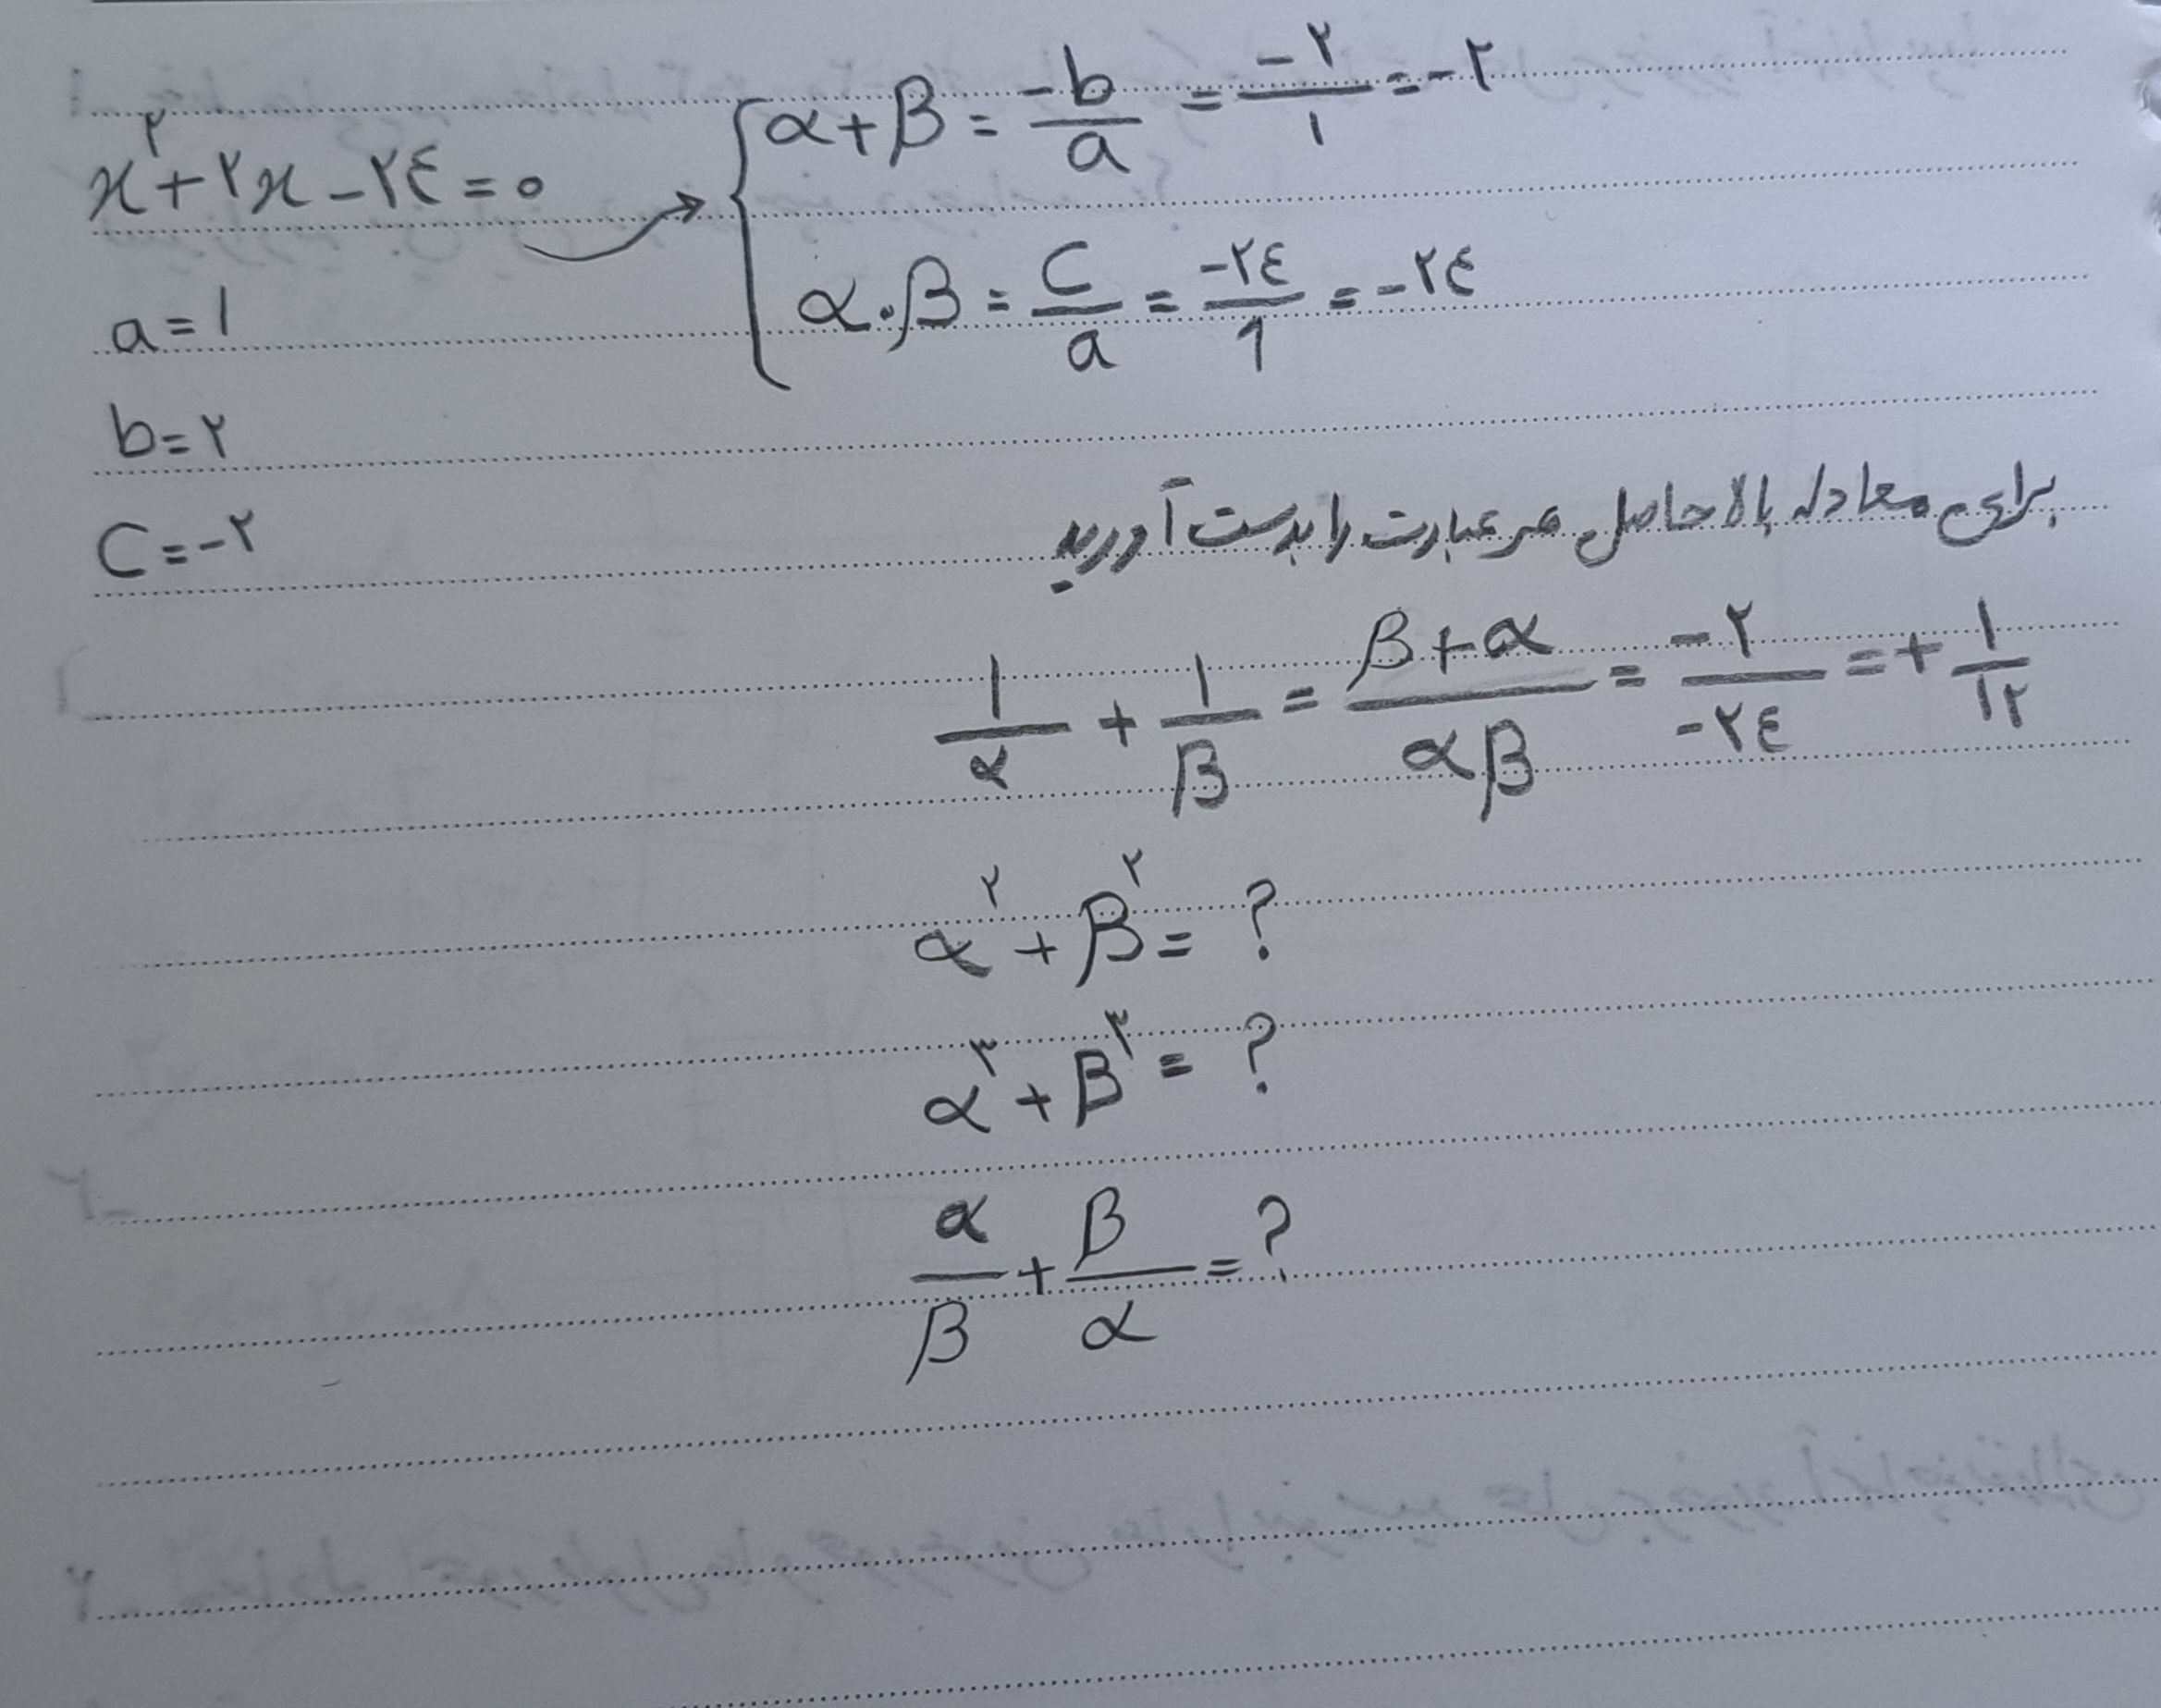 x^۲ + ۲x - ۲٤ = ۰
α + β = -b/a = -۲/۱ = -۲
α . β = c/a = -۲٤/1 = -۲٤
a = ۱
b = ۲
c = -۲
برای معادله بالا حاصل هر عبارت را بدست آورید
۱/α + ۱/β = β+α/αβ = -۲/-۲٤ = + ۱/۱۲
α^۲ + β^۲ = ?
α^۳ + β^۳ = ?
α/β + β/α = ?